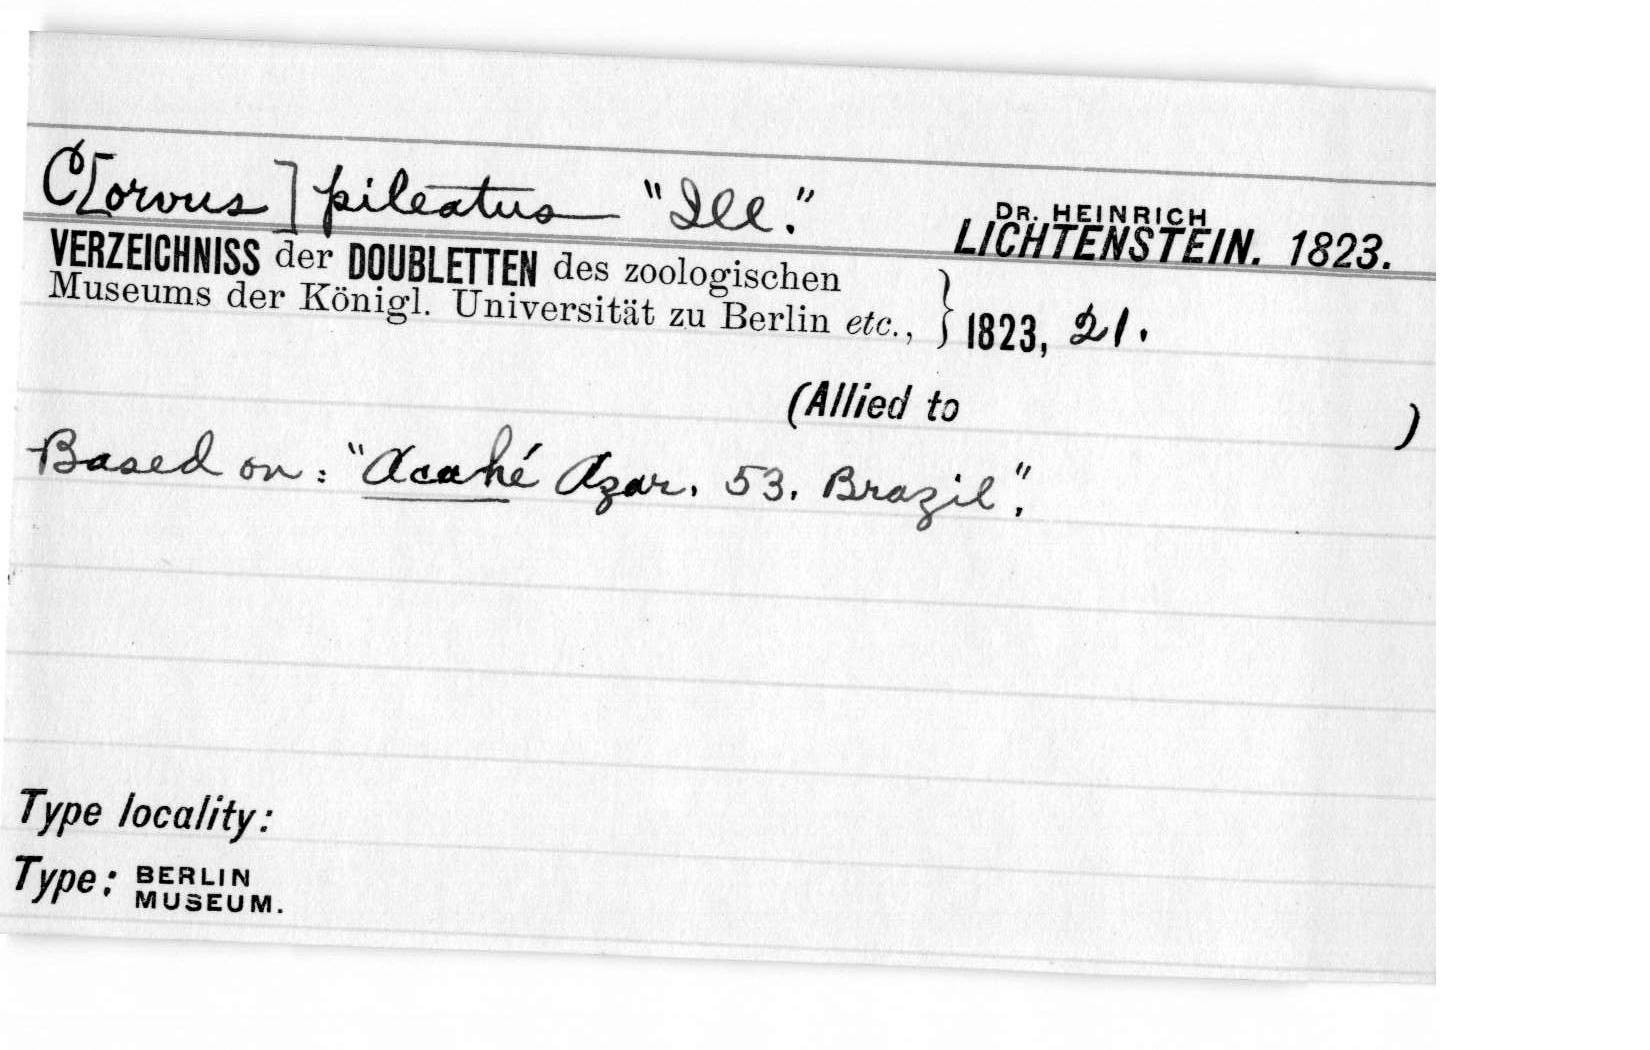 C[orvus] pileatus "Ill."
DR. HEINRICH
LICHTENSTEIN. 1823.
VERZEICHNISS der DOUBLETTEN des zoologischen
Museums der Königl. Universität zu Berlin etc., } 1823, 21.
(Allied to )
Based on: "Acahé Azar. 53. Brazil".
Type locality:
Type: BERLIN
MUSEUM.